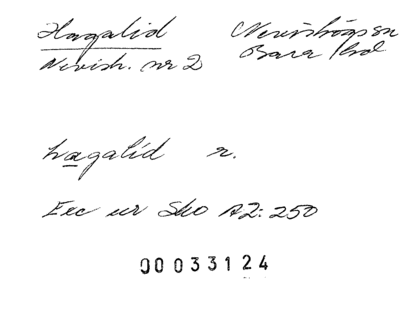 Hagalid Nevishögs sn
Nevish. nr 2 Bara hd
hagalid n.
Exc ur Sko AZ: 250
00033124